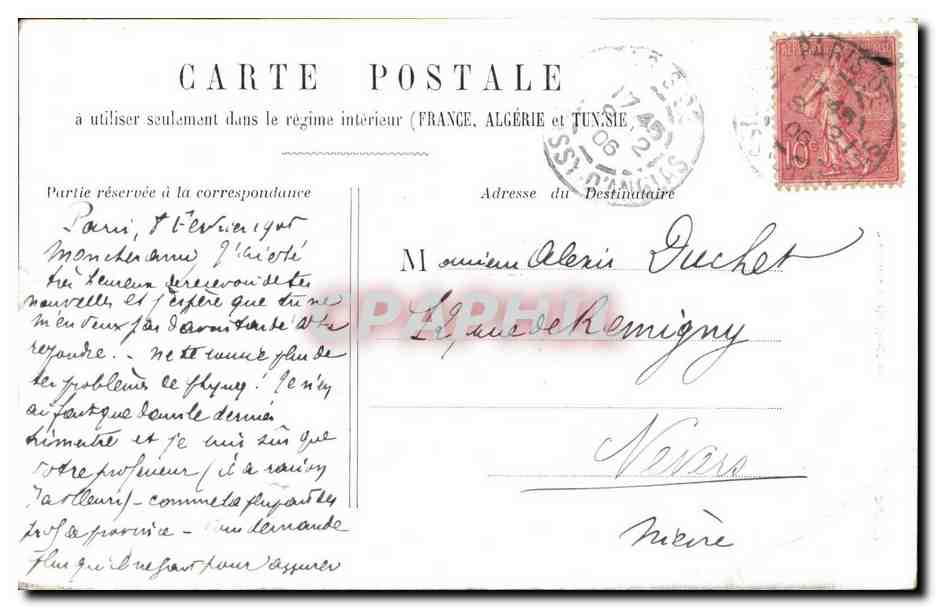 CARTE POSTALE
à utiliser seulement dans le régime intérieur (FRANCE, ALGÉRIE et TUNISIE
Partie réservée à la correspondance
Adresse du Destinataire
PARIS
17 45
9 2
06
10c
Paris, 8 Février 1906
Mon cher ami, J'ai été
très heureux de recevoir de tes
nouvelles et j'espère que tu ne
m'en veux pas d'avoir tardé à te
répondre. - Ne te soucie plus de
tes problèmes de phys ! Je n'en
ai fait que dans le dernier
trimestre et je suis sûr que
votre professeur (il a raison
d'ailleurs) - comme la plupart des
prof de province - vous demande
plus qu'il ne faut pour assurer
Monsieur Alexis Duchet
12, rue de Remigny
Nevers
Nièvre
CPAPHIL